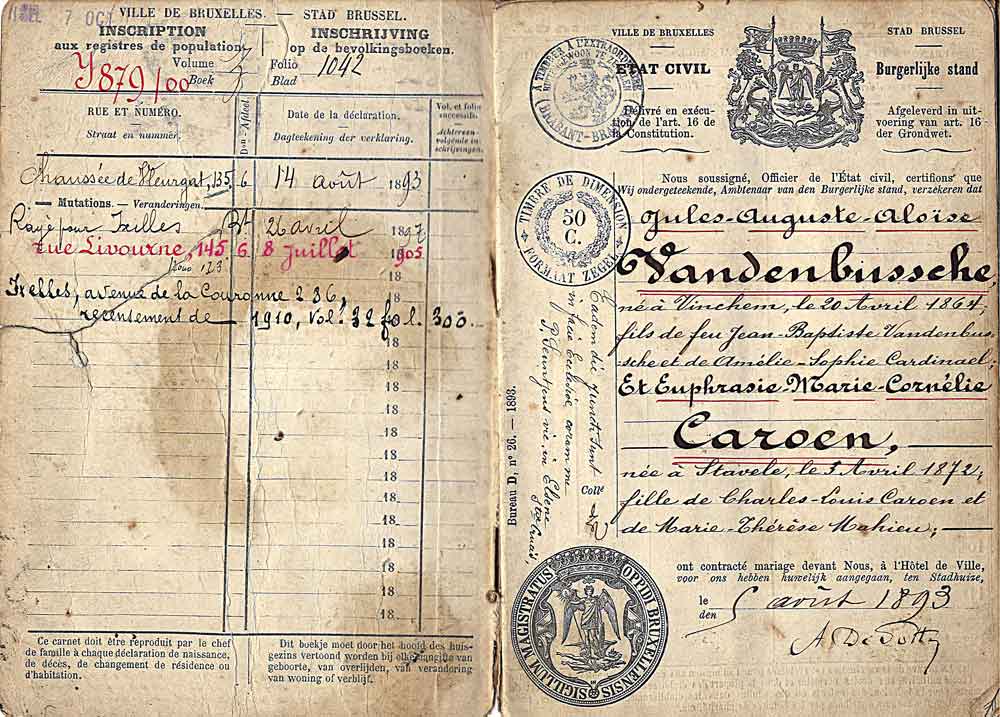 7 OCT
VILLE DE BRUXELLES. — STAD BRUSSEL.
INSCRIPTION
aux registres de population
INSCHRIJVING
op de bevolkingsboeken.
Volume
Boek
Folio
Blad
1042
Y879/00
RUE ET NUMÉRO.
Straat en nummer.
Don - Afdeel.
Date de la déclaration.
Dagteekening der verklaring.
Vol. et folio
successifs.
Achtereen-
volgende in-
schrijvingen.
Chaussée de Vleurgat, 135 6 14 août 1893
— Mutations. — Veranderingen.
Rayé pour Ixelles Bt. 26 avril 1897
rue Livourne, 145 6 8 Juillet 1905
123
Ixelles, avenue de la Couronne 236,
recensement de 1910, Vol. 32 fol. 303
18
18
18
18
18
18
18
18
18
18
18
Ce carnet doit être reproduit par le chef
de famille à chaque déclaration de naissance,
de décès, de changement de résidence ou
d'habitation.
Dit boekje moet door het hoofd des huis-
gezins vertoond worden bij elke aangifte van
geboorte, van overlijden, van verandering
van woning of verblijf.
VILLE DE BRUXELLES
STAD BRUSSEL
ÉTAT CIVIL
Burgerlijke stand
Délivré en exécu-
tion de l'art. 16 de
la Constitution.
Afgeleverd in uit-
voering van art. 16
der Grondwet.
TIMBRE A L'EXTRAORDINAIRE
TIMBRE DE DIMENSION
50
C.
FORMAAT ZEGEL
Nous soussigné, Officier de l'État civil, certifions que
Wij ondergeteekende, Ambtenaar van den Burgerlijke stand, verzekeren dat
Jules-Auguste-Aloïse
Vandenbussche,
né à Vinchem, le 20 Avril 1864,
fils de feu Jean-Baptiste Vandenbus-
sche et de Amélie-Sophie Cardinael,
Et Euphrasie-Marie-Cornélie
Caroen,
née à Stavele, le 5 Avril 1872,
fille de Charles-Louis Caroen et
de Marie-Thérèse Mahieu;
ont contracté mariage devant Nous, à l'Hôtel de Ville,
voor ons hebben huwelijk aangegaan, ten Stadhuize,
le
den
5 août 1893
Eadem die juncti sunt
in facie Ecclesiæ coram me
Bureau D, n° 26. — 1893.
Collé
SIGILLUM MAGISTRATUS OPPIDI BRUXELLENSIS